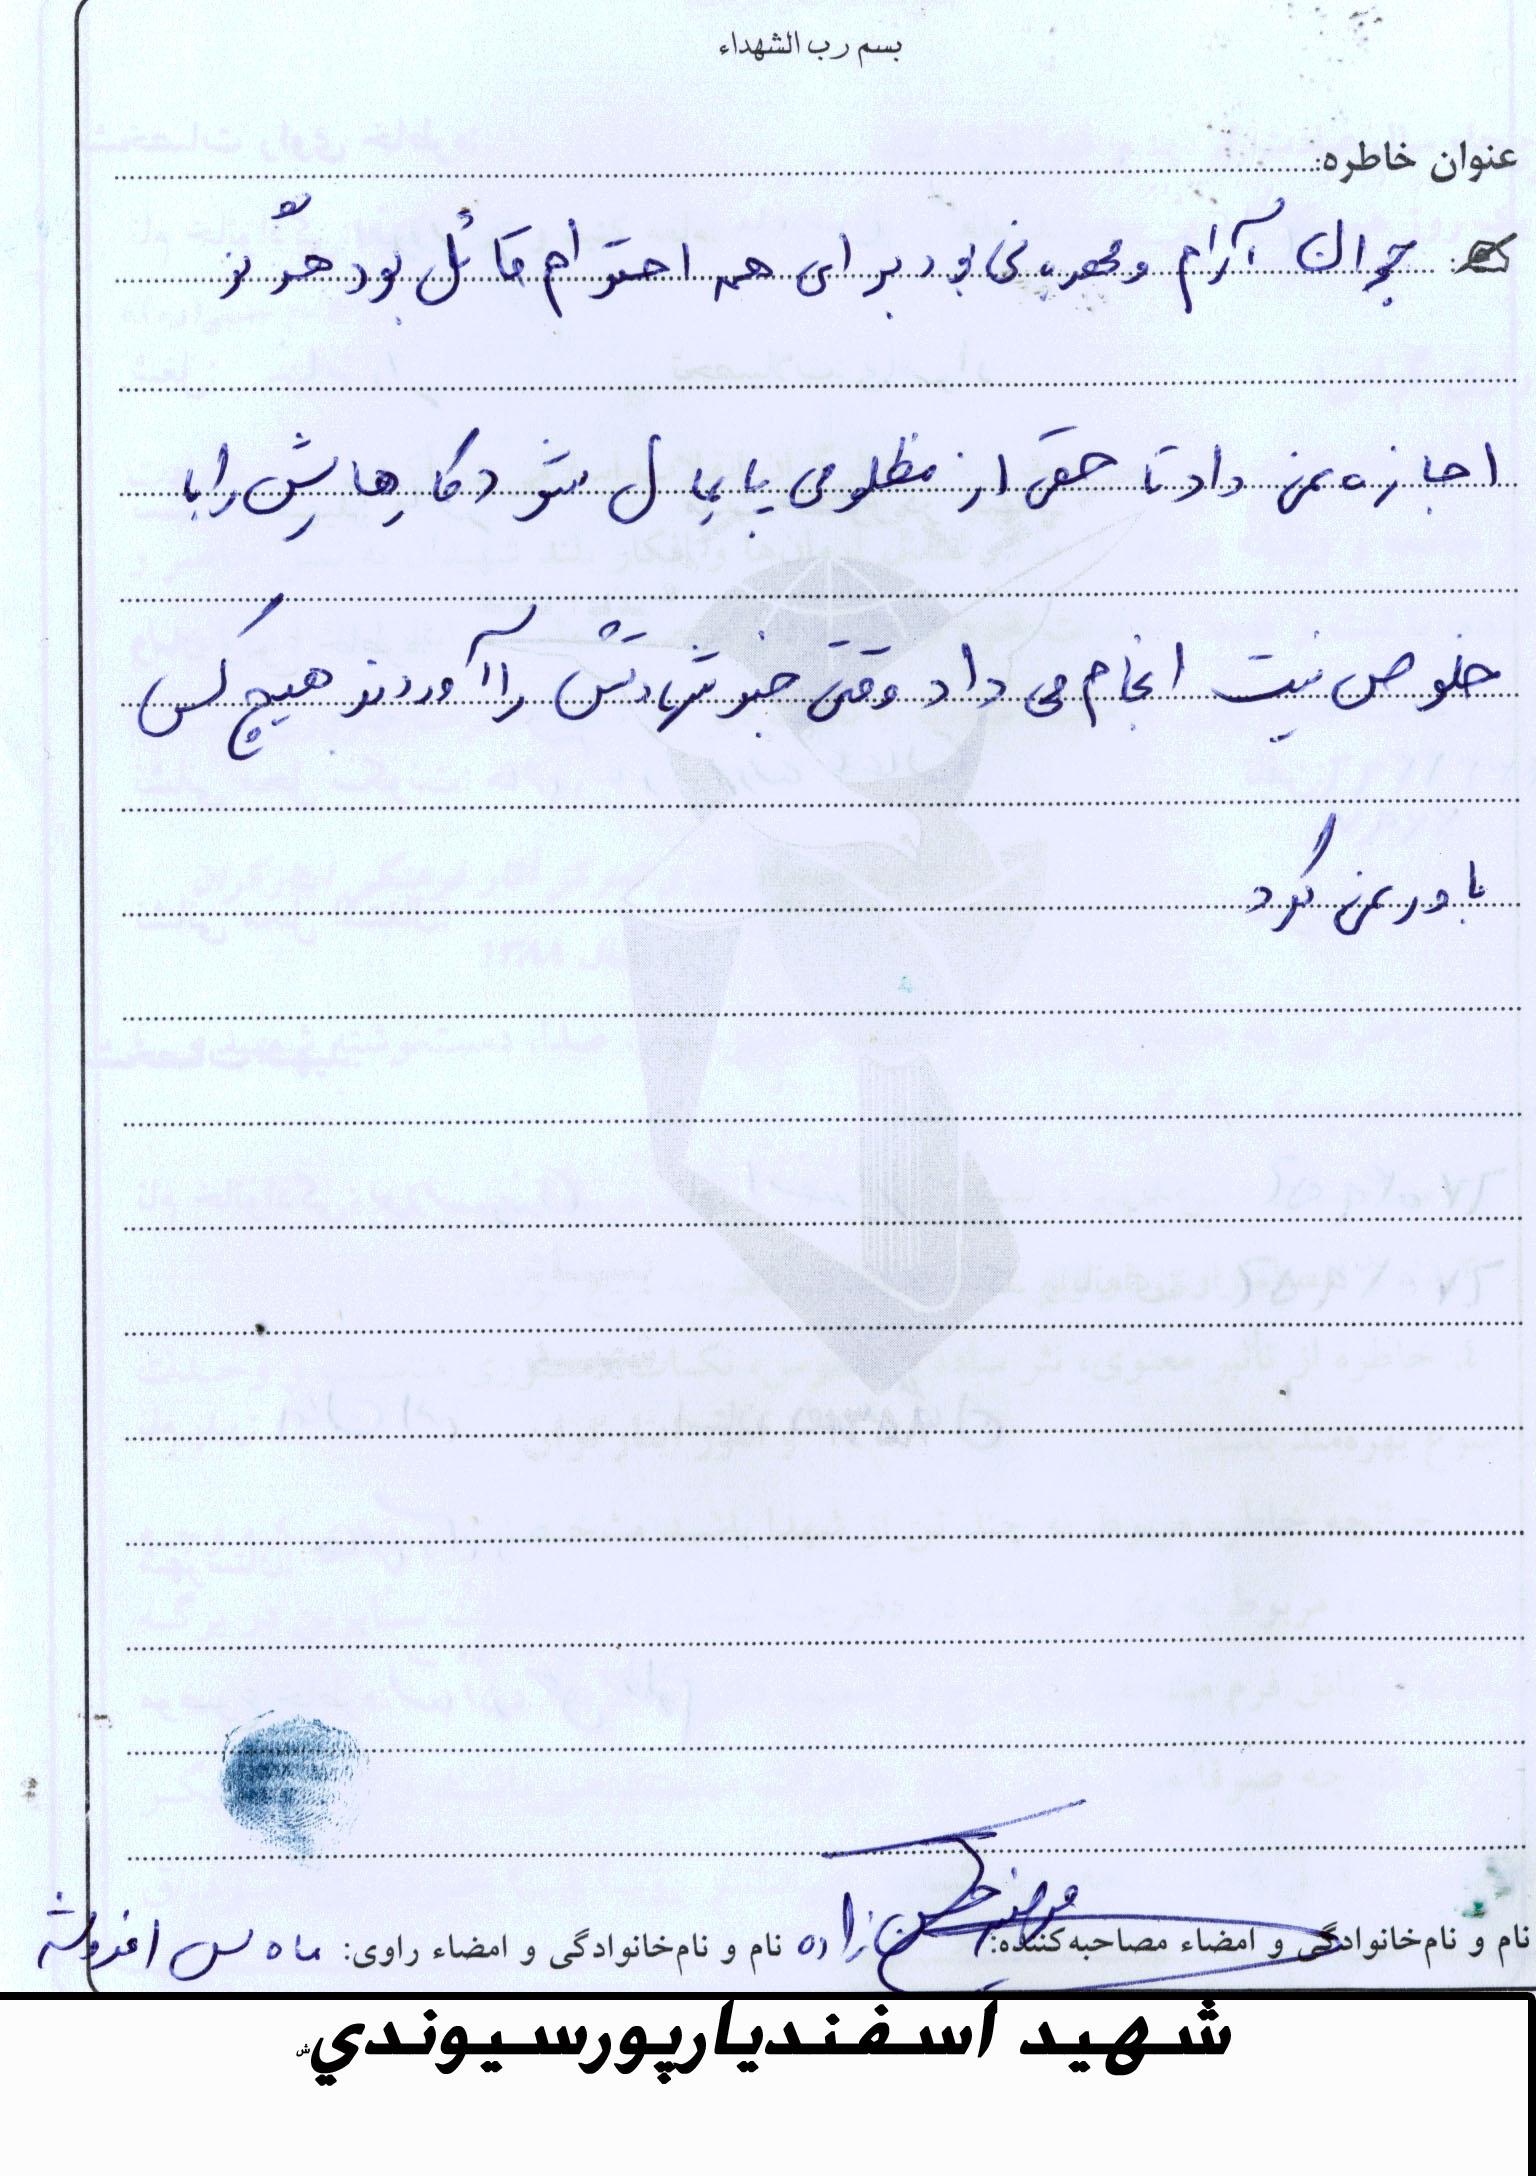 بسم رب الشهداء
عنوان خاطره:
جوان آرام و مهربانی بود برای همه احترام قائل بود هرگز
اجازه نمی داد تا حقی از مظلومی پایمال شود کارهایش را با
خلوص نیت انجام می داد وقتی خبر شهادتش را آوردند هیچ کس
باور نمی کرد
نام و نام‌خانوادگی و امضاء مصاحبه‌کننده: حسن زاده نام و نام‌خانوادگی و امضاء راوی: ماه بس افروشه
شهيد اسفنديارپورسيوندي
ش